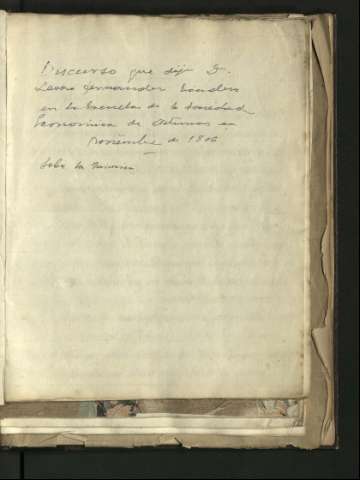 Discurso que dijo D.
Fernandez
en la Escuela de la Sociedad
Economica de Asturias en
noviembre de 1806
Sobre la